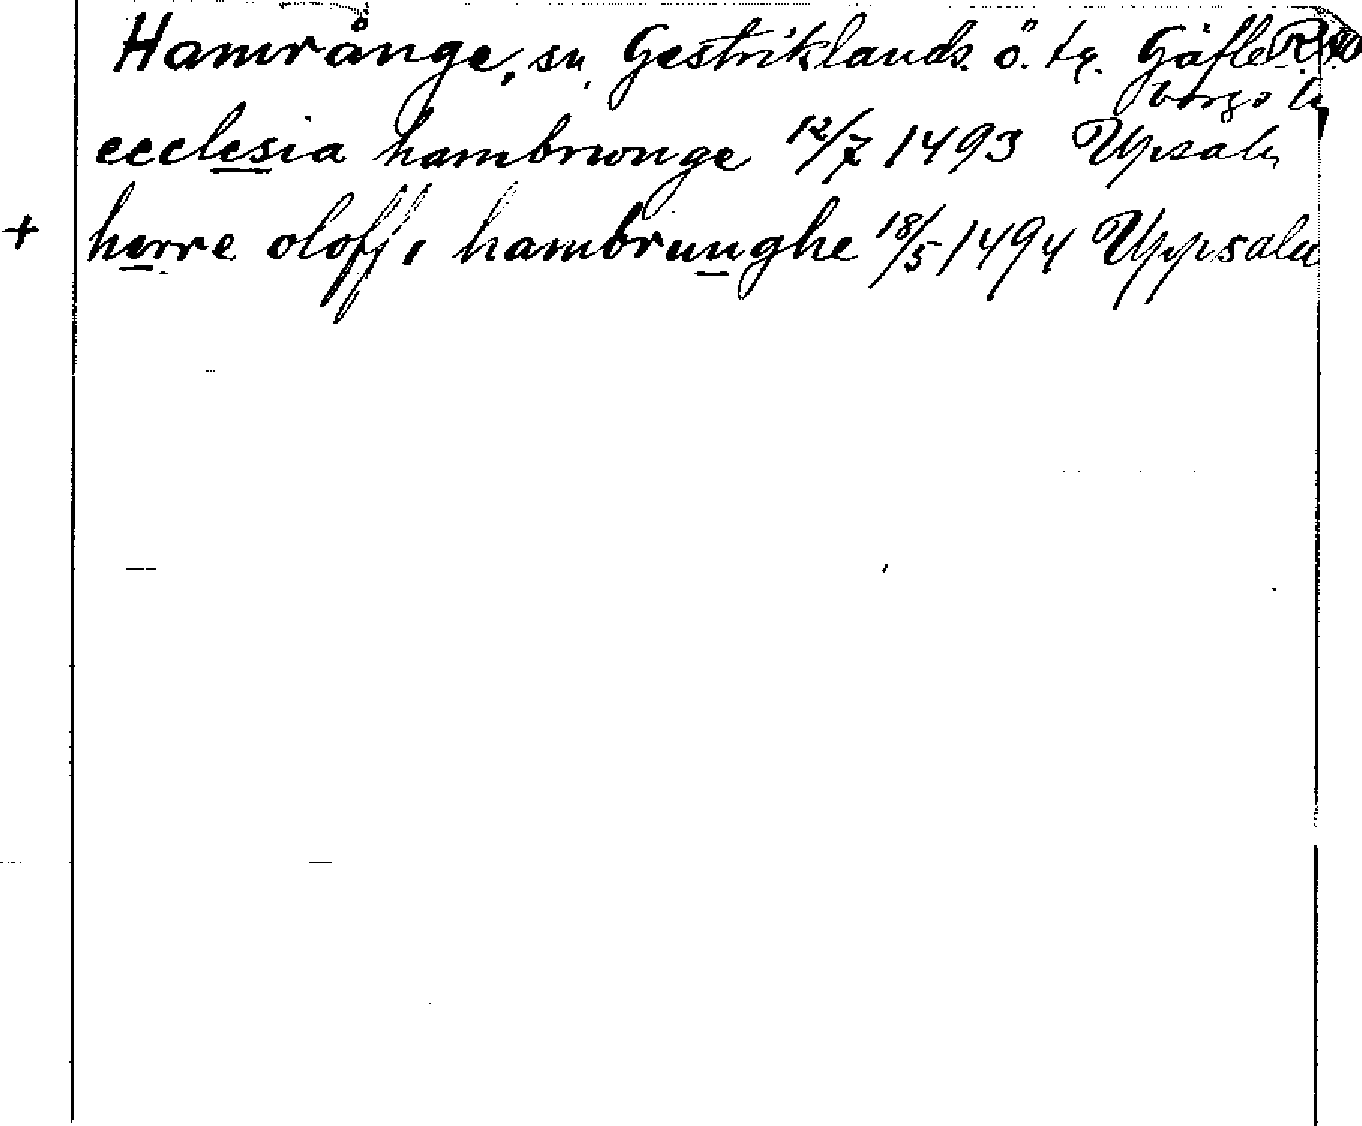 Hamrånge, sn, Gestriklands ö. tg. Gäfle
borgs l.
ecclesia hambrwnge 12/7 1493 Upsala
+ herre oloff i hambrunghe 18/5 1494 Uppsala